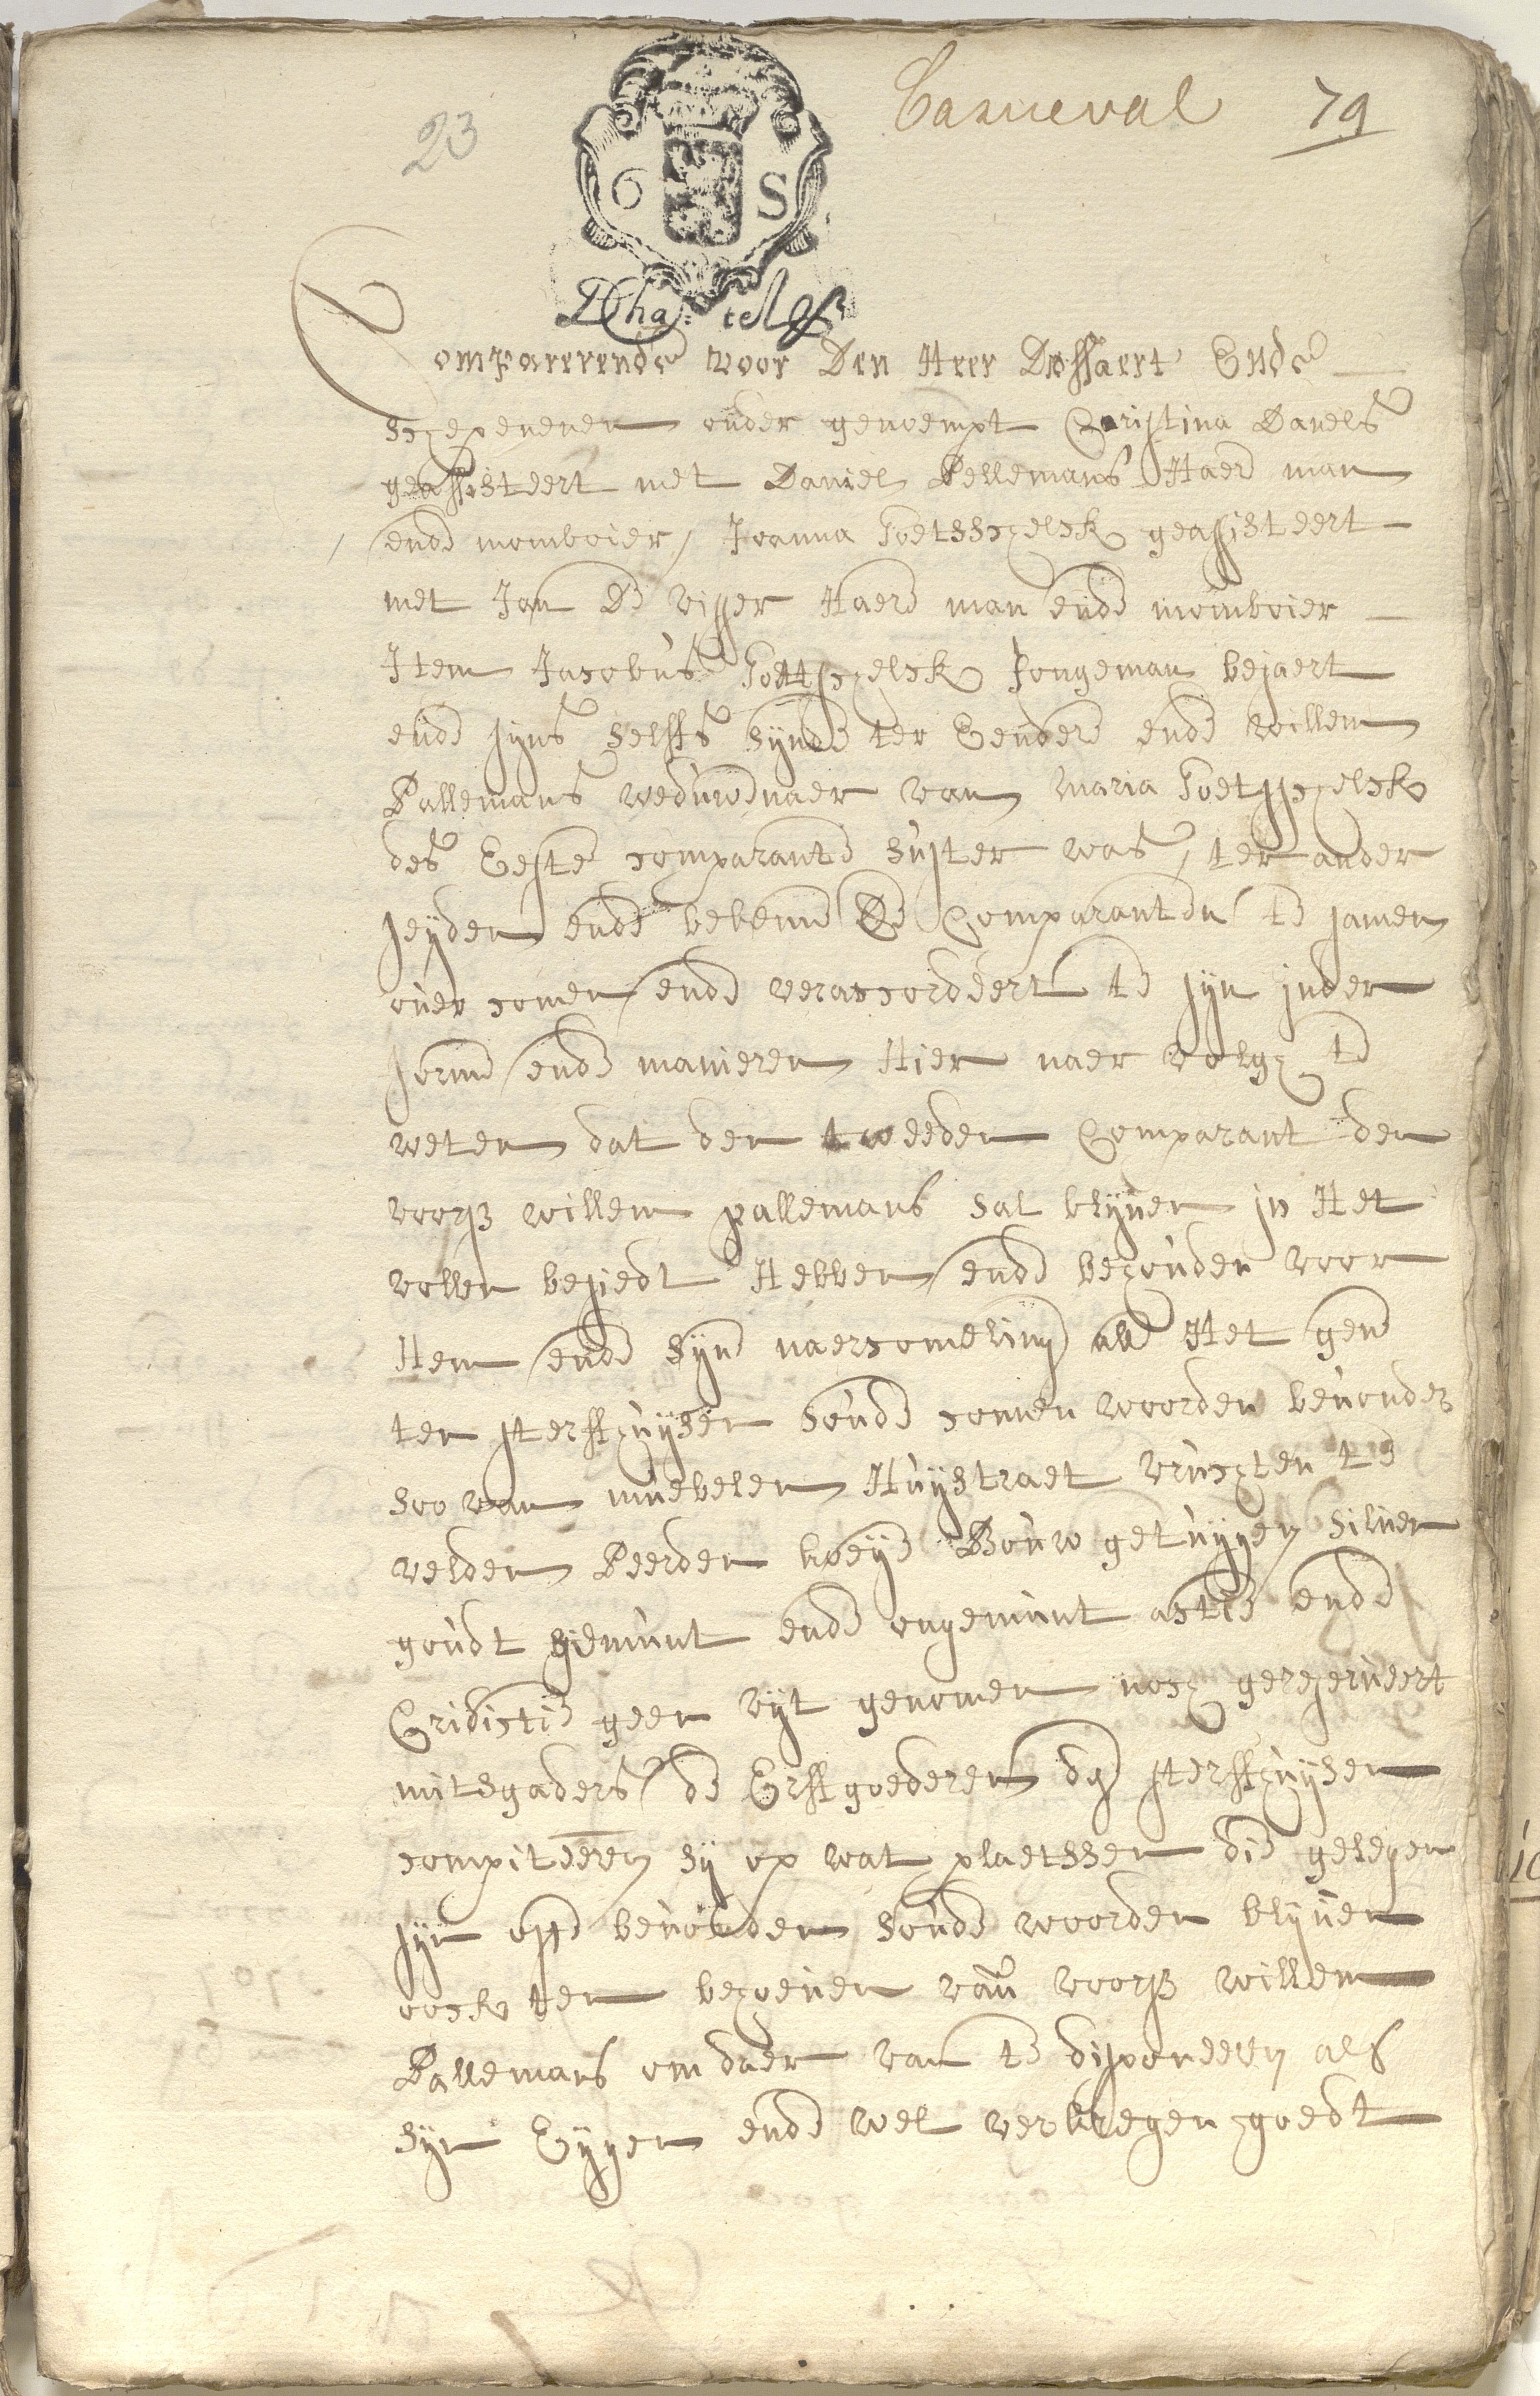 23
Carneval 79
6 S
Comparerende voor Den Heer Dossaert Ende
schepenenen onder genoempt Christina Danels
geassisteert met Daniel Pellemans Haer man
ende momboier / Joanna Goetsschelck geassisteert
met Jan De visser Haere man ende momboier
Item Jacobus Goetschelck Jongeman bejaert
ende syns selffs synde ter Eendere ende willem
Pallemans weduwenaer van Maria Goetschelck
des Eeste comparante suster was, ter ander
seyden ende bekenne De Comparanten te samen
over comen ende veraccordeert te syn inder
forme ende manieren Hier naer volgh te
weten dat den tweeden Comparant den
voors willem pallemans sal blyven in Het
vollen besiedt Hebben ende behouden voor
Hem ende syne naercomeling all Het gene
ter sterffhuysen soude comen woorden bevonden
soo van muebelen Huystraet vruchten te
velden Peerden koeye Bouw getuygen silver
goudt gemunt ende ongemunt actie ende
Cridictie geen uyt genomen noch gereserveert
mitsgaders de Erffgoederen des sterffhuysen
compiteeren sy op wat plaetssen die gelegen
syn ofte bevonden soude woorden blyven
oock ten behoeven van voors willem
Pallemans om daer van te disponeren als
syn Eygen ende wel verkregen goedt